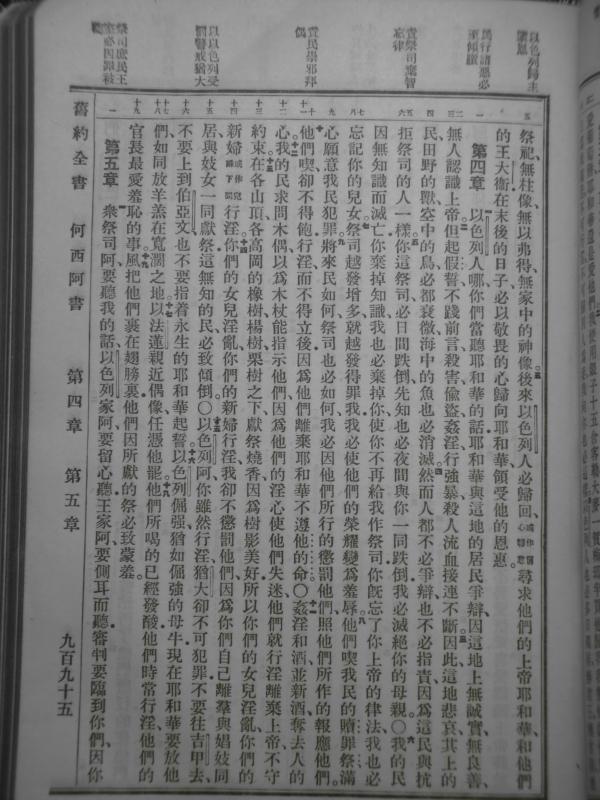 以色列歸主
蒙恩
爲行諸惡必
至傾覆
責祭司棄智
忘律
責民崇邪拜
偶
以以色列受
罰警戒猶大
祭司庶民王
室必因罪被
五
祭祀、無柱像、無以弗得、無家中的神像後來以色列人必歸回尋求他們的上帝耶和華、和他們
的王大衛在末後的日子、必以敬畏的心歸向耶和華、領受他的恩惠。
一
第四章 以色列人哪、你們當聽耶和華的話、耶和華與這地的居民爭辯、因這地上無誠實、無良善、
二三
無人認識上帝但起假誓不踐前言殺害偷盜姦淫行強暴殺人流血接連不斷因此這地悲哀其上的
四
民田野的獸空中的鳥必都衰微海中的魚也必消滅然而人都不必爭辯也不必指責因爲這民與抗
五六
拒祭司的人一樣你這祭司必日間跌倒先知也必夜間與你一同跌倒我必滅絕你的母親〇我的民
因無知識而滅亡你棄掉知識我也必棄掉你使你不再給我作祭司你既忘了你上帝的律法我也必
七八
忘記你的兒女祭司越發增多就越發得罪我我必使他們的榮耀變爲羞辱他們喫我民的贖罪祭滿
九
心願意我民犯罪將來民如何祭司也必如何我必因他們所行的懲罰他們照他們所作的報應他們。
十 十一
他們喫卻不得飽行淫而不得立後因爲他們離棄耶和華不遵他的命〇姦淫和酒並新酒奪去人的
十二
心我的民求問木偶以爲木杖能指示他們因爲他們的淫心使他們失迷他們就行淫離棄上帝不守
十三
約束在各山頂各高岡的橡樹楊樹栗樹之下獻祭燒香因爲樹影美好所以你們的女兒淫亂你們的
十四
新婦行淫你們的女兒淫亂你們的新婦行淫我卻不懲罰他們因爲你們自己離羣與娼妓同
十五
居與妓女一同獻祭這無知的民必致傾倒〇以色列阿你雖然行淫猶大卻不可犯罪不要往吉甲去
十六
不要上到伯亞文也不要指着永生的耶和華起誓以色列倔強猶如倔強的母牛現在耶和華要放他
十七 十八
們如同放羊羔在寬濶之地以法蓮親近偶像任憑他罷他們所喝的已經發酸他們時常行淫他們的
十九
官長最愛羞恥的事風把他們裹在翅膀裏他們因所獻的祭必致蒙羞。
一
第五章 衆祭司阿要聽我的話以色列家阿要留心聽王家阿要側耳而聽審判要臨到你們、因你
舊約全書 何西阿書 第四章 第五章 九百九十五